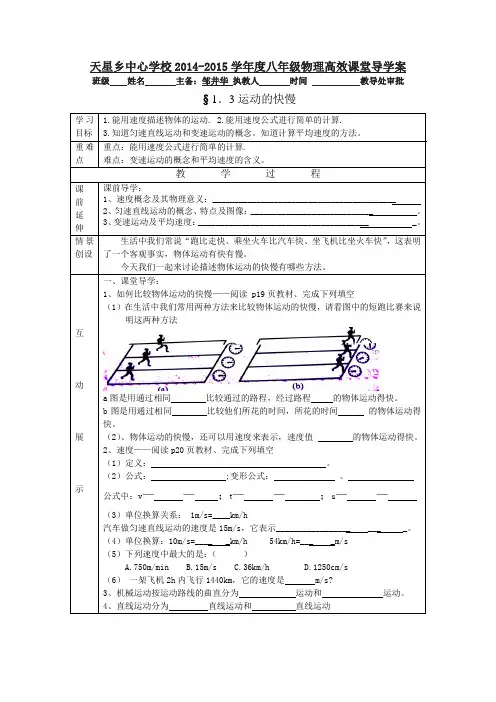 天星乡中心学校2014-2015学年度八年级物理高效课堂导学案
班级____姓名______ 主备：邹井华 执教人______ 时间 __________ 教导处审批
§1．3运动的快慢
学习目标
1.能用速度描述物体的运动. 2.能用速度公式进行简单的计算.
3.知道匀速直线运动和变速运动的概念。知道计算平均速度的方法。
重难点
重点：能用速度公式进行简单的计算.
难点：变速运动的概念和平均速度的含义。
教 学 过 程
课前延伸
课前导学：
1、速度概念及其物理意义：______
2、匀速直线运动的概念、特点及图像：______。
3、变速运动及平均速度：______。
情景创设
生活中我们常说“跑比走快、乘坐火车比汽车快、坐飞机比坐火车快”，这表明
了一个客观事实，物体运动有快有慢。
今天我们一起来讨论描述物体运动的快慢有哪些方法。
互动展示
一、课堂导学：
1、如何比较物体运动的快慢——阅读 p19页教材、完成下列填空
（1）在生活中我们常用两种方法来比较物体运动的快慢，请看图中的短跑比赛来说
明这两种方法
(a) (b)
a图是用通过相同______比较通过的路程，经过路程____的物体运动得快。
b图是用通过相同______比较他们所花的时间，所花的时间____ 的物体运动得
快。
（2）、物体运动的快慢，还可以用速度来表示，速度值 ______的物体运动得快。
2、速度——阅读p20页教材、完成下列填空
（1）定义：______。
（2）公式：______;变形公式：______ 、______
公式中：v—____—____；t—____—____；s—____—____
（3）单位换算关系： 1m/s=____km/h
汽车做匀速直线运动的速度是15m/s，它表示______。
（4）单位换算：10m/s=______km/h 54km/h=______m/s
（5）下列速度中最大的是：（ ）
A.750m/min B.15m/s C.36km/h D.1250cm/s
（6） 一架飞机2h内飞行1440km，它的速度是_____m/s?
3、机械运动按运动路线的曲直分为______运动和______运动。
4、直线运动分为______直线运动和______直线运动